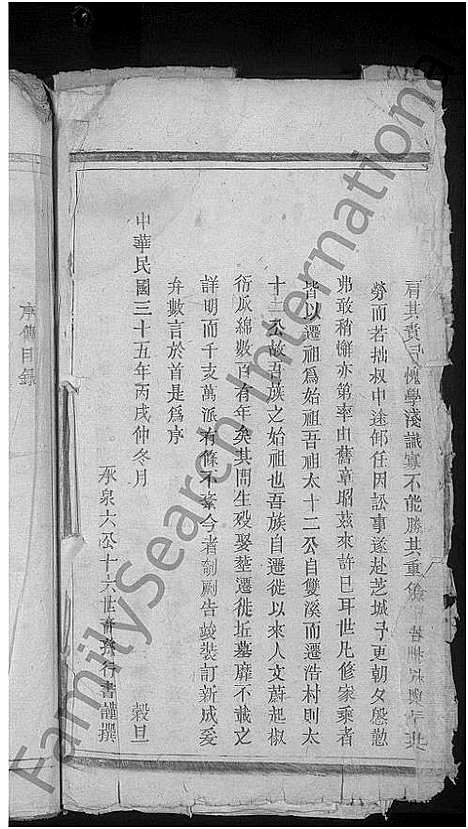 肩其責自愧學淺識寡不能勝其重
勞而若拙叔中途卸任因訟事遂赴芝城予更朝夕慇懃
弗敢稍懈亦第率由舊章昭茲來許已耳世凡修家乘者
皆以遷祖爲始祖吾祖太十二公自雙溪而遷浩村則太
十二公故吾族之始祖也吾族自遷徙以來人文蔚起椒
衍瓜綿數百有年矣其間生殁娶塟遷徙坵墓靡不載之
詳明而千支萬派有條不紊今者剞劂告竣裝訂新成爰
弁數言於首是爲序
中華民國三十五年丙戌仲冬月 榖旦
承泉六公十六世裔孫行書謹撰
序傳目錄
FamilySearch International